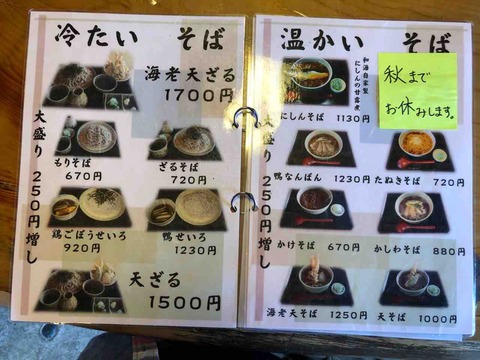 冷たい そば
海老天ざる
1700円
もりそば
670円
ざるそば
720円
鶏ごぼうせいろ
920円
鴨せいろ
1230円
天ざる
1500円
大盛り 250円増し
温かい そば
和海自家製
にしんの甘露煮
にしんそば 1130円
秋まで
お休みします。
鴨なんばん 1230円
たぬきそば 720円
かけそば 670円
かしわそば 880円
海老天そば 1250円
天そば 1000円
大盛り 250円増し